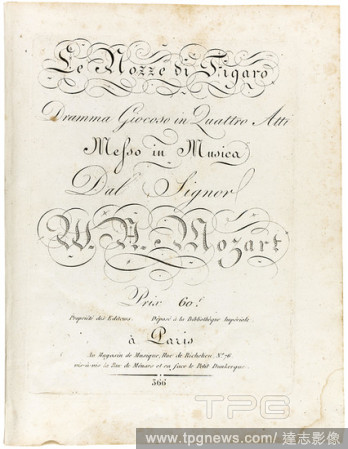 Le Nozze di Figaro
Dramma Giocoso in Quattro Atti
Messo in Musica
Dal Signor
W. A. Mozart
Prix 60.f
Propriété des Editeurs. Déposé à la Bibliothèque Impériale.
à Paris
Au Magasin de Musique, Rue de Richelieu, N.º 76.
vis-à-vis la Rue de Ménars et en face le Petit Dunkerque
566
TPG
www.tpgnews.com/達志影像